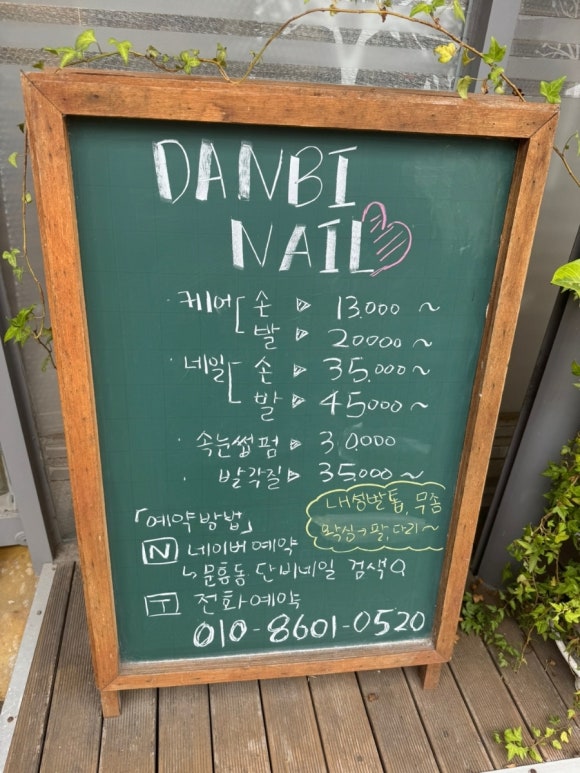 DANBI
NAIL
· 케어 [ 손 ▷ 13.000 ~
발 ▷ 20000 ~
· 네일 [ 손 ▷ 35.000 ~
발 ▷ 45000 ~
· 속눈썹펌 ▷ 30.000
· 발각질 ▷ 35.000 ~
내성발톱, 무좀
왁싱→팔,다리~
「예약방법」
N 네이버예약
↳문흥동 단비네일 검색
T 전화예약
010-8601-0520